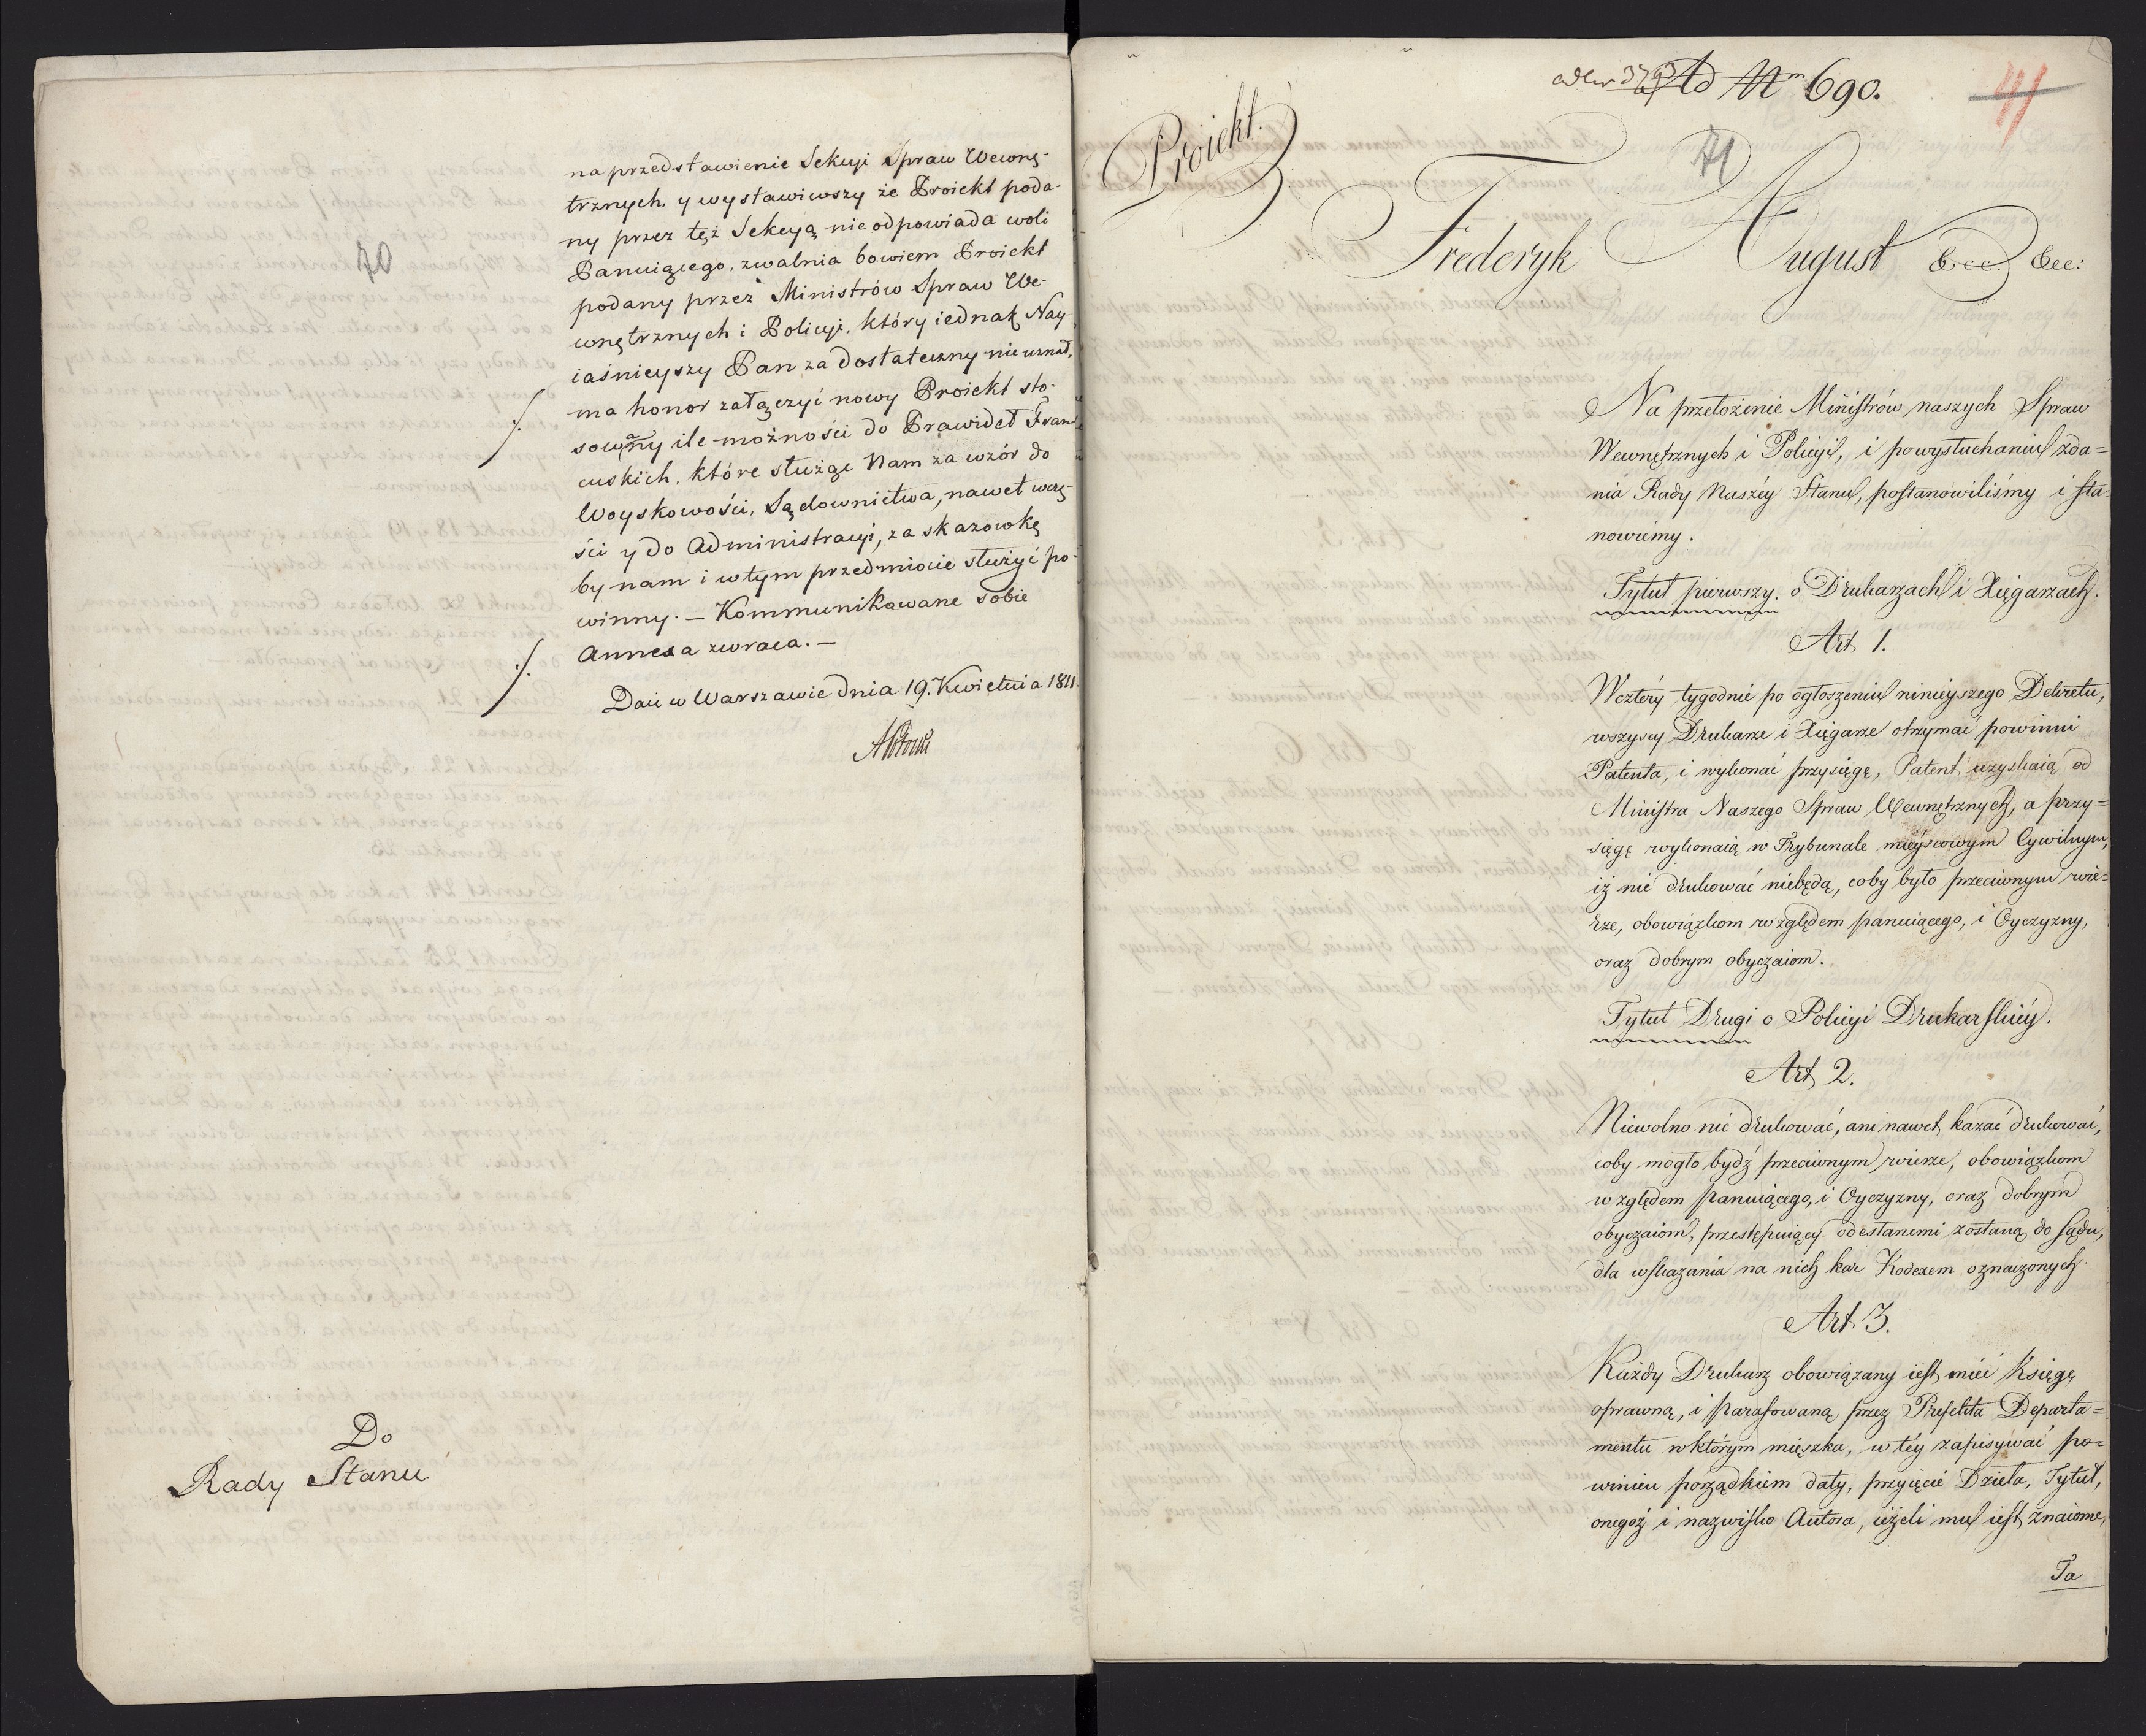 70
na przedstawienie Sekcyi Spraw Wewnę-
trznych y wystawiwszy że Proiekt poda-
ny przez tęż Sekcyą nie odpowiada woli
Panuiącego, zwalnia bowiem Proiekt
podany przez Ministrów Spraw We-
wnętrznych i Policyi, który iednak Nay
iaśnieyszy Pan za dostateczny nie uznał,
ma honor załączyć nowy Proiekt sto-
sowany ile możności do Prawideł Fran-
cuskich, które służąc Nam za wzór do
Woyskowości, Sądownictwa, nawet wczę-
ści y do Administracyi, za skazowkę
by nam i w tym przedmiocie służyć po-
winny. — Kommunikowane sobie
Annexa zwraca. —
Dań w Warszawie dnia 19. Kwietnia 1811.
Do
Rady Stanu
Ad Nm 690.
41
71
Proiekt.
Fryderyk August &cc. &cc:
Na przełożenie Ministrów naszych Spraw
Wewnętrznych i Policyi, i powysłuchaniu zda=
nia Rady Naszéy Stanu, postanowiliśmy i sta-
nowiemy.
Tytuł pierwszy. o Drukarzach i Xięgarzach.
Art. 1.
Wcztéry tygodnie po ogłoszeniu ninieyszego Dekretu,
wszyscy Drukarze i Xięgarze otrzymać powinni
Patenta, i wykonać przysięgę, Patent uzyskaią od
Ministra Naszego Spraw Wewnętrznych, a przy=
sięgę wykonaią w Trybunale mieyscowym Cywilnym,
iż nic drukować niebędą, coby było przeciwnym wie=
rze, obowiązkom względem panuiącego, i Oyczyzny,
oraz dobrym obyczaiom.
Tytuł Drugi o Policyi Drukarskiéy.
Art. 2.
Niewolno nic drukować, ani nawet kazać drukować,
coby mogło bydź przeciwnym wierze, obowiązkom
względem panuiącego, i Oyczyzny, oraz dobrym
obyczaiom, przestępuiący odesłanemi zostaną do sądu,
dla wskazania na nich kar Kodexem oznaczonych.
Art. 3.
Każdy Drukarz obowiązany iest mieć Księgę
oprawną, i parafowaną przez Prefekta Departa=
mentu wktórym mięszka, w téy zapisywać po=
winien porządkiem daty, przyięcie Dzieła, Tytuł,
onegoż i nazwisko Autora, ieżeli mu iest znaiome,
Ta